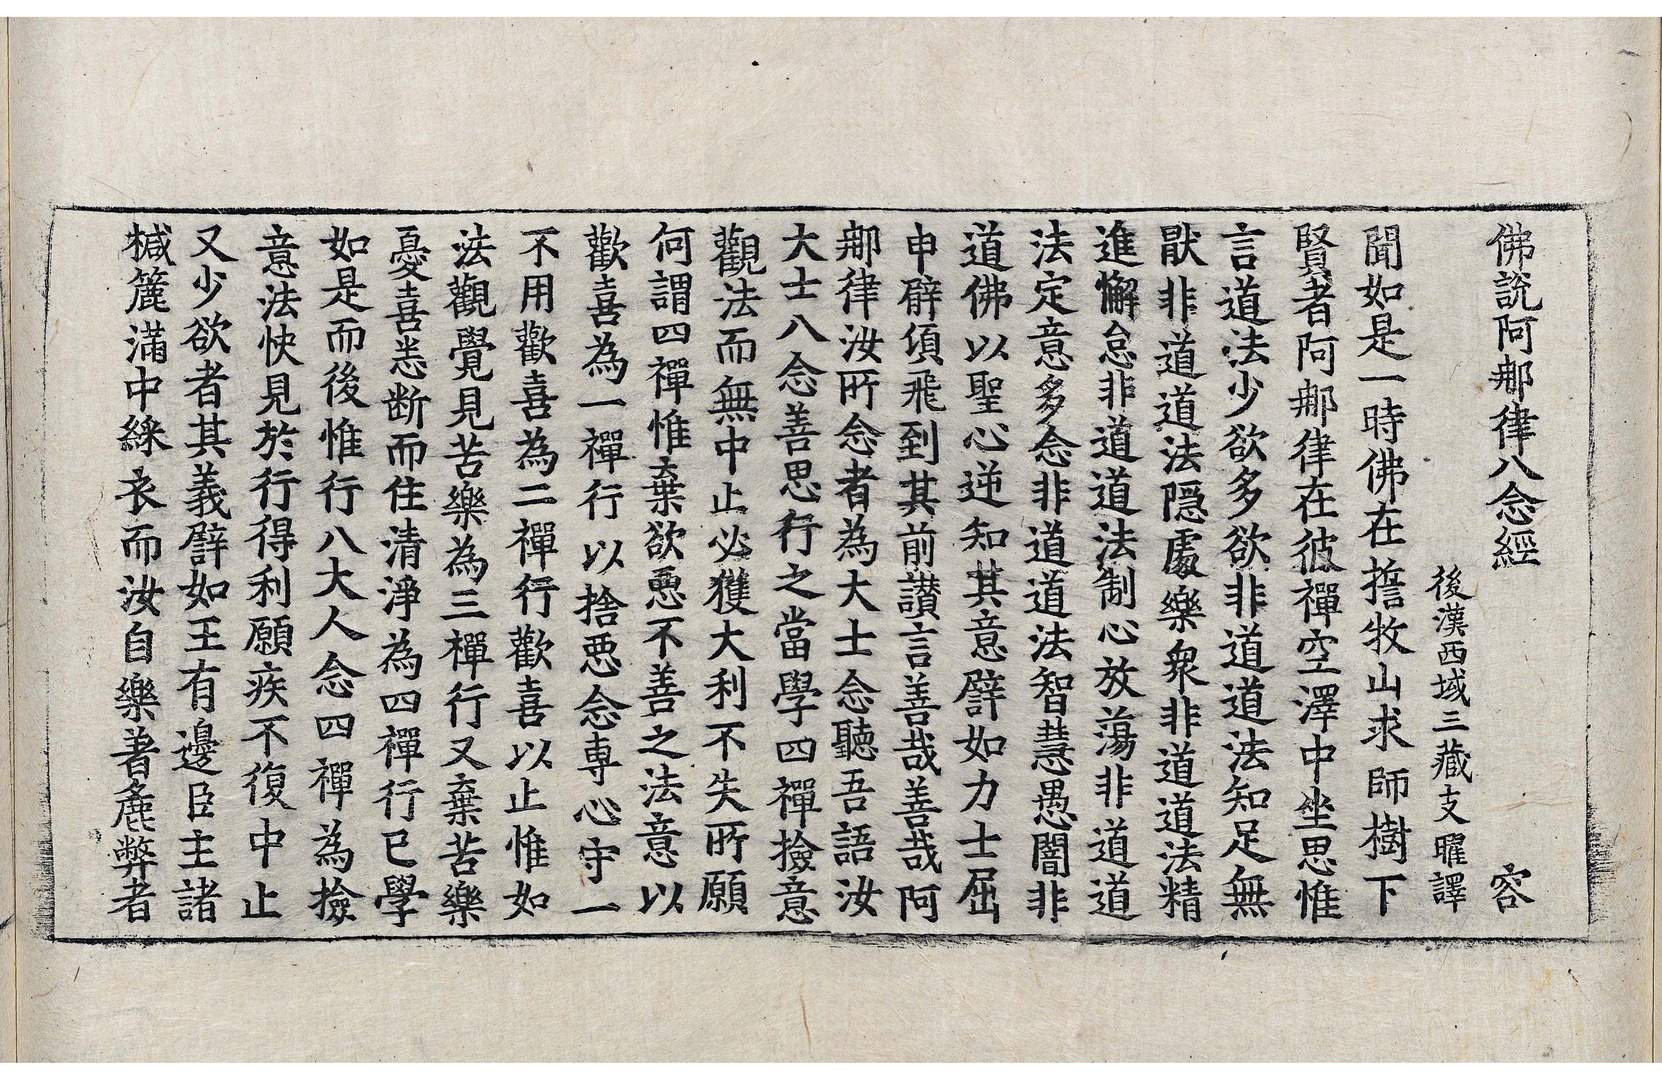 佛說阿那律八念經 容
後漢西域三藏支曜譯
聞如是一時佛在誓牧山求師樹下
賢者阿那律在彼禪空澤中坐思惟
言道法少欲多欲非道道法知足無
猒非道道法隱處樂衆非道道法精
進懈怠非道道法制心放蕩非道道
法定意多念非道道法智慧愚闇非
道佛以聖心逆知其意譬如力士屈
申臂頃飛到其前讃言善哉善哉阿
那律汝所念者為大士念聽吾語汝
大士八念善思行之當學四禪撿意
觀法而無中止必獲大利不失所願
何謂四禪惟棄欲惡不善之法意以
歡喜為一禪行以捨惡念專心守一
不用歡喜為二禪行歡喜以止惟如
法觀覺見苦樂為三禪行又棄苦樂
憂喜悉断而住清淨為四禪行已學
如是而後惟行八大人念四禪為撿
意法快見於行得利願疾不復中止
又少欲者其義譬如王有邊臣主諸
椷簏滿中綵衣而汝自樂著麁弊者